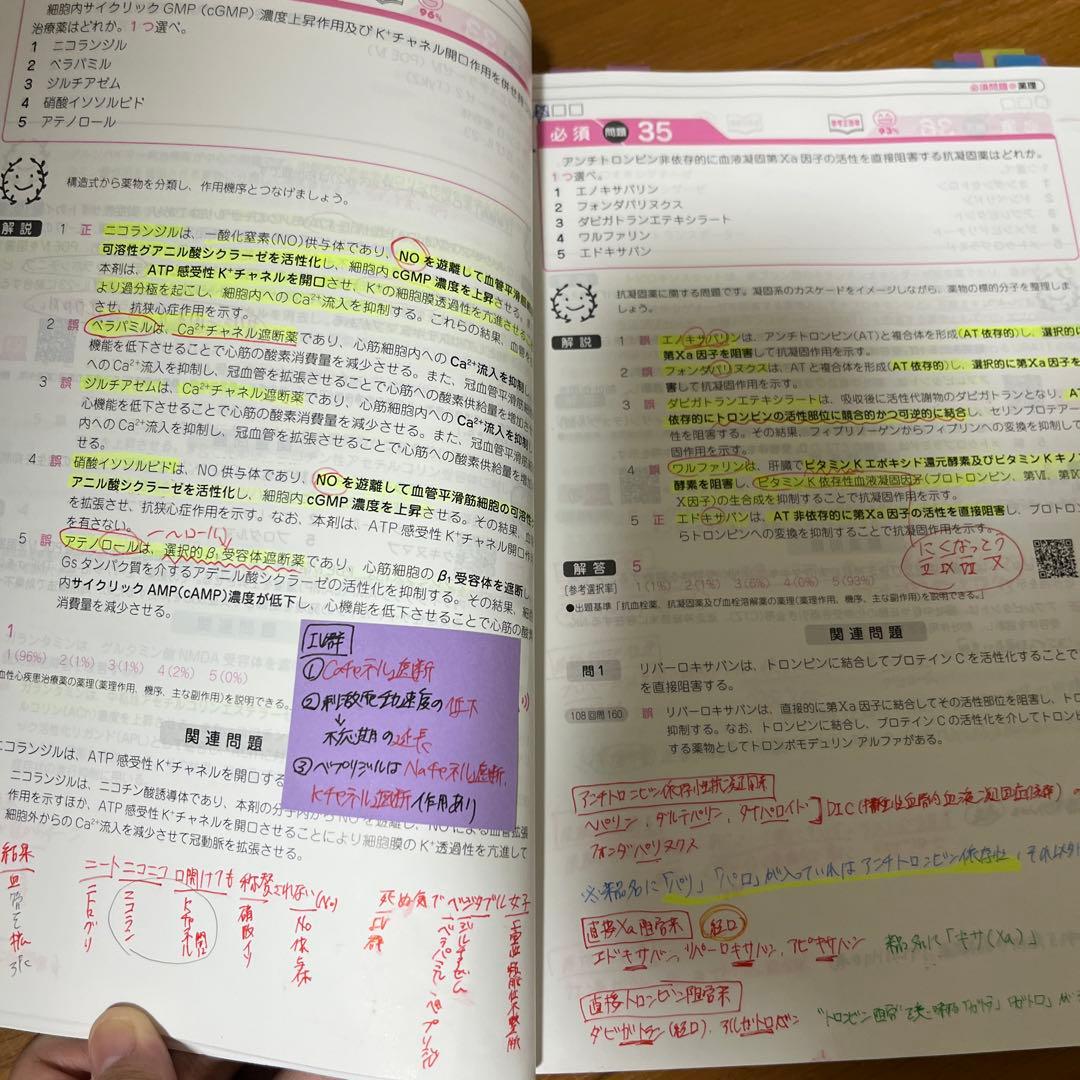 96%
細胞内サイクリックGMP(cGMP)濃度上昇作用及びK⁺チャネル開口作用を併せ持つ
治療薬はどれか。1つ選べ。
1 ニコランジル
2 ベラパミル
3 ジルチアゼム
4 硝酸イソソルビド
5 アテノロール
構造式から薬物を分類し、作用機序とつなげましょう。
解説 1 正 ニコランジルは、一酸化窒素(NO)供与体であり、NOを遊離して血管平滑筋細
可溶性グアニル酸シクラーゼを活性化し、細胞内cGMP濃度を上昇させる。また、
本剤は、ATP感受性K⁺チャネルを開口させ、K⁺の細胞膜透過性を亢進させること
より過分極を起こし、細胞内へのCa²⁺流入を抑制する。これらの結果、血管を
させ、抗狭心症作用を示す。
2 誤 ベラパミルは、Ca²⁺チャネル遮断薬であり、心筋細胞内へのCa²⁺流入を抑制し
機能を低下させることで心筋の酸素消費量を減少させる。また、冠血管平滑筋
へのCa²⁺流入を抑制し、冠血管を拡張させることで心筋への酸素供給量を増加さ
3 誤 ジルチアゼムは、Ca²⁺チャネル遮断薬であり、心筋細胞内へのCa²⁺流入を抑制
心機能を低下させることで心筋の酸素消費量を減少させる。また、冠血管平滑筋
内へのCa²⁺流入を抑制し、冠血管を拡張させることで心筋への酸素供給量を増
せる。
4 誤 硝酸イソソルビドは、NO供与体であり、NOを遊離して血管平滑筋細胞の可溶性グ
アニル酸シクラーゼを活性化し、細胞内cGMP濃度を上昇させる。その結果、
を拡張させ、抗狭心症作用を示す。なお、本剤は、ATP感受性K⁺チャネル開口作
を有さない。
〜ロール
5 誤 アテノロールは、選択的β₁受容体遮断薬であり、心筋細胞のβ₁受容体を遮断し
Gsタンパク質を介するアデニル酸シクラーゼの活性化を抑制する。その結果、細
内サイクリックAMP(cAMP)濃度が低下し、心機能を低下させることで心筋の酸
消費量を減少させる。
1
1(96%) 2(1%) 3(1%) 4(2%) 5(0%)
血性心疾患治療薬の薬理(薬理作用、機序、主な副作用)を説明できる。
関連問題
ニコランジルは、ATP感受性K⁺チャネルを開口する
ニコランジルは、ニコチン酸誘導体であり、本剤の分子内からNOを遊離し、NOによる血管拡張
作用を示すほか、ATP感受性K⁺チャネルを開口させることにより細胞膜のK⁺透過性を亢進して
細胞外からのCa²⁺流入を減少させて冠動脈を拡張させる。
IV群
①Caチャネル遮断
②刺激伝導速度の低下
↓
不応期の延長
③ベプリジルはNaチャネル遮断、
Kチャネル遮断作用あり
結果
血管を拡
ニートニコニコ口開けても称賛されない(No)
ニトログリ
ニコラン
Kチャネル開
硝酸イソ
No供与体
死ぬ気でベジタブル女子
IV群
ベラパミル、ベプリジル
ジルチアゼム
必須問題 薬理
必須 問題 35
参考正答率
93%
アンチトロンビン非依存的に血液凝固第Xa因子の活性を直接阻害する抗凝固薬はどれか。
1つ選べ。
1 エノキサパリン
2 フォンダパリヌクス
3 ダビガトランエテキシラート
4 ワルファリン
5 エドキサバン
抗凝固薬に関する問題です。凝固系のカスケードをイメージしながら、薬物の標的分子を整理しま
しょう。
解説 1 誤 エノキサパリンは、アンチトロンビン(AT)と複合体を形成(AT依存的)し、選択的に
第Xa因子を阻害して抗凝固作用を示す。
2 誤 フォンダパリヌクスは、ATと複合体を形成(AT依存的)し、選択的に第Xa因子を
害して抗凝固作用を示す。
3 誤 ダビガトランエテキシラートは、吸収後に活性代謝物のダビガトランとなり、AT
依存的にトロンビンの活性部位に競合的かつ可逆的に結合し、セリンプロテアー
性を阻害する。その結果、フィブリノーゲンからフィブリンへの変換を抑制して
固作用を示す。
4 誤 ワルファリンは、肝臓でビタミンKエポキシド還元酵素及びビタミンKキノ
酵素を阻害し、ビタミンK依存性血液凝固因子(プロトロンビン、第Ⅶ、第Ⅸ
X因子)の生合成を抑制することで抗凝固作用を示す。
5 正 エドキサバンは、AT非依存的に第Xa因子の活性を直接阻害し、プロトロン
らトロンビンへの変換を抑制することで抗凝固作用を示す。
にくなっとう
Ⅱ Ⅸ Ⅶ Ⅹ
解答 5
[参考選択率] 1(1%) 2(1%) 3(6%) 4(0%) 5(93%)
●出題基準「抗血栓薬、抗凝固薬及び血栓溶解薬の薬理(薬理作用、機序、主な副作用)を説明できる。」
関連問題
問1 リバーロキサバンは、トロンビンに結合してプロテインCを活性化することで
を直接阻害する。
108回問160 誤 リバーロキサバンは、直接的に第Xa因子に結合してその活性部位を阻害し、トロ
抑制する。なお、トロンビンに結合し、プロテインCの活性化を介してトロンビ
する薬物としてトロンボモデュリン アルファがある。
アンチトロンビン依存性抗凝固薬
ヘパリン、ダルテパリン、ダナパロイド]DIC(播種性血管内血液凝固症候群)の
フォンダパリヌクス
※薬品名に「パリ」「パロ」が入っていればアンチトロンビン依存性、それ以外
直接Xa阻害薬 経口
エドキサバン、リバーロキサバン、アピキサバン 薬名に「キサ(Xa)」
直接トロンビン阻害薬
ダビガトラン(経口)、アルガトロバン